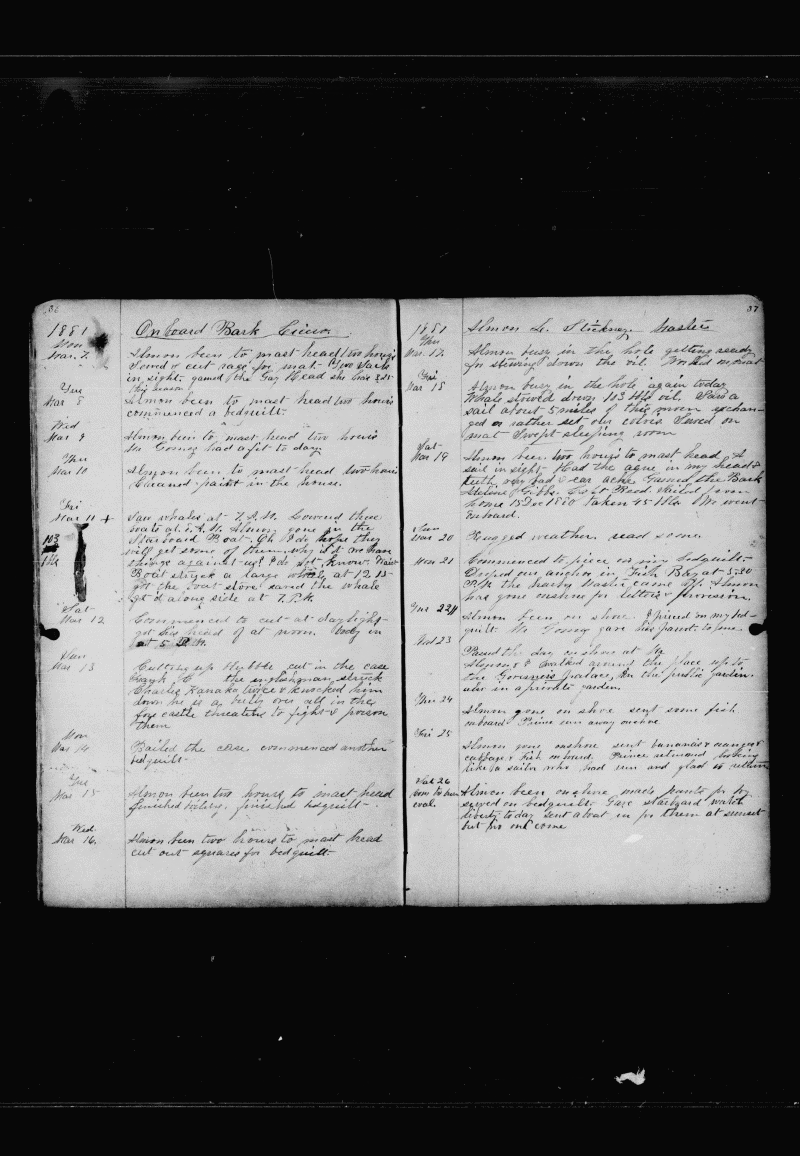 36
1881 On board Bark Cicero
Mon
Mar. 7. Almon been to mast head two hours
Sewed & cut rags for mat. Two sails
in sight. gamed the Gay Head she has 325
this season
Tue
Mar 8 Almon been to mast head two hours
commenced a bedquilt.
Wed
Mar 9 Almon been to mast head two hours
Mr Gomez had a fit to day
Thu
Mar 10 Almon been to mast head two hours
Cleaned paint in the house.
Fri
Mar 11 + Saw whales at 7. A.M. Lowered three
boats at A.M. Almon gone in the
103 Starboard Boat. Oh I do hope they
will get some of them why is it we have
Bbls things against us? I do not know. Waist
Boat struck a large whale at 12.15
got the boat stove saved the whale
got it along side at 7. P.M.
Sat
Mar 12 Commenced to cut at daylight
got his head of at noon. body in
at 5 P.M.
Sun
Mar 13 Cutting up blubber cut in the case
the englishman struck
Charlie Kanaka twice & knocked him
down he is a bully over all in the
fore castle threatens to fight & poison
them
Mon
Mar 14 Bailed the case commenced another
bedquilt
Tue
Mar 15 Almon been two hours to mast head
finished boiling, finished bedquilt
Wed.
Mar 16. Almon been two hours to mast head
cut out squares for bedquilt.
37
1881 Almon L. Stickney Master
Thu
Mar. 17. Almon busy in the hole getting ready
for stowing down the oil. Worked on mat
Fri
Mar 18 Almon busy in the hole again today
Whale stowed down 103 bbls oil. Saw a
sail about 5 miles of this noon exchan-
ged or rather set our colors Sewed on
mat Swept sleeping room
Sat
Mar 19 Almon been two hours to mast head A
sail in sight. Had the ague in my head &
teeth very bad & ear ache Gamed the Bark
Gibbs. Capt Reed. Sailed from
home 15 Dec 1880 taken 45 bbls We went
onboard
Sun
Mar 20 Rugged weather. read some
Mon 21 Commenced to piece on my bedquilt.
Droped our anchor in Fish Bay at 5.30
P.M. the harbor Master came of. Almon
has gone onshore for letters & provision.
Tue 22 Almon been on shore. I pieced on my bed-
quilt. Mr Gomez gave his parrot to June
Wed 23 Passed the day on shore at
& walked around the place up to
the Governers palace, in the public garden.
also in a private garden.
Thu 24 Almon gone on shore sent some fish
onboard. Prince run away onshore
Fri 25 Almon gone onshore sent bananas & oranges
cabbage & fish onboard. Prince returned looking
like a sailor who had run and glad to return
Sat 26 Almon been onshore, made pants for boy
sewed on bedquilt. Gave starboard watch
coal. liberty to day. sent a boat in for them at sunset
but for one come